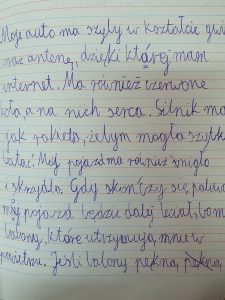 Moje auto ma szyby w kształcie gwi
oraz antenę, dzięki której mam
internet. Ma również czerwone
koła, a na nich serca. Silnik ma
jak rakieta, żebym mogła szybk
latać. Mój pojazd ma również śmigło
i skrzydła. Gdy skończy się paliwo
mój pojazd będzie dalej leciał, bo m
balony, które utrzymują mnie w
powietrzu. Jeśli balony pękną,